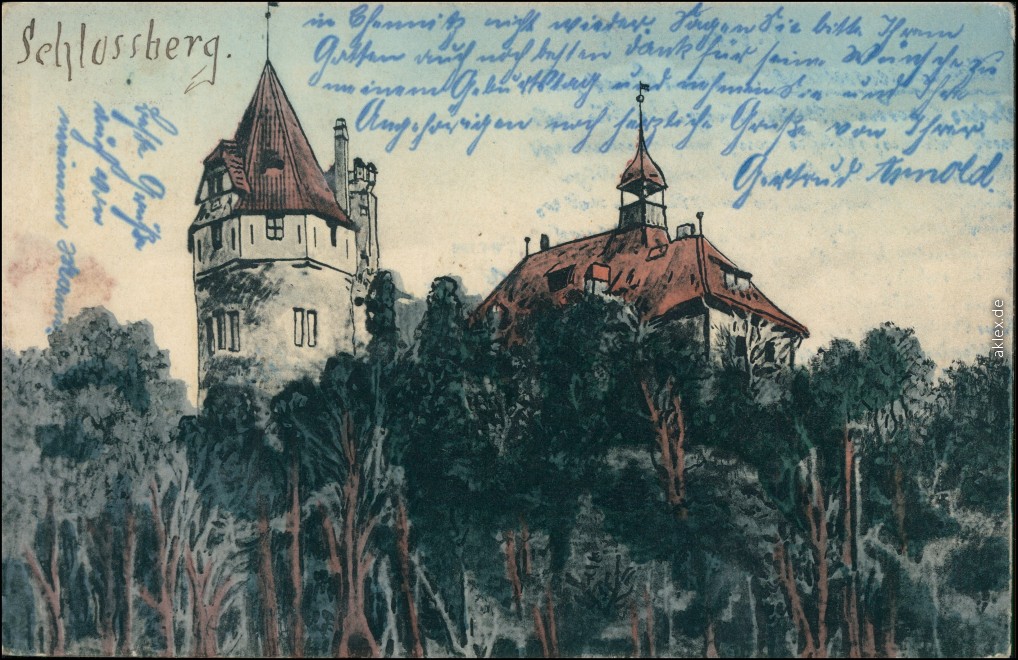 Schlossberg.
in Chemnitz nicht wieder. Sagen Sie bitte Ihrem
Gatten auch noch besten Dank für seine Wünsche zu
meinem Geburtstag und nehmen Sie und Ihre
Angehörigen noch herzliche Grüße von Ihrer
Gertrud Arnold.
Beste Grüße
auch von
meinem Mann
aklex.de